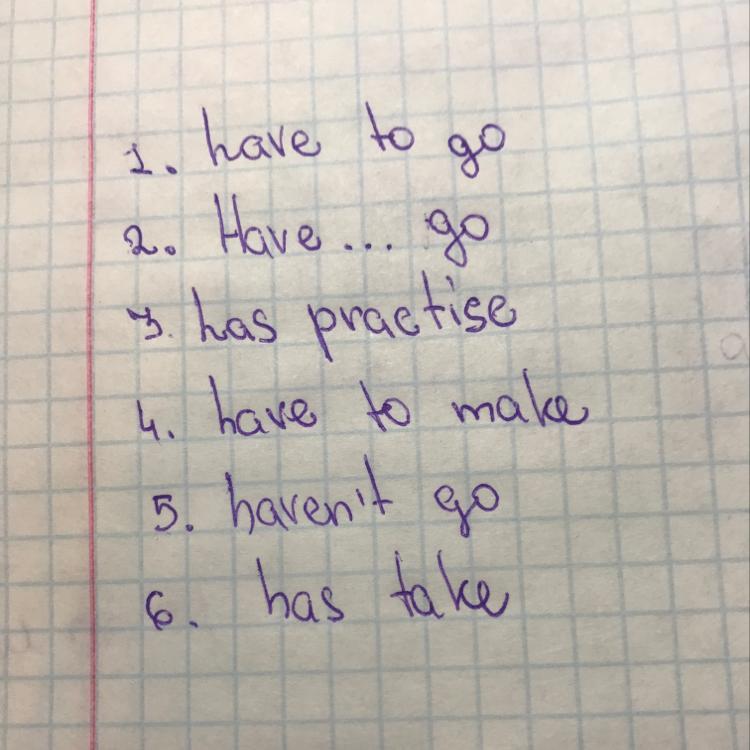 1. have to go
2. Have ... go
3. has practise
4. have to make
5. haven't go
6. has take